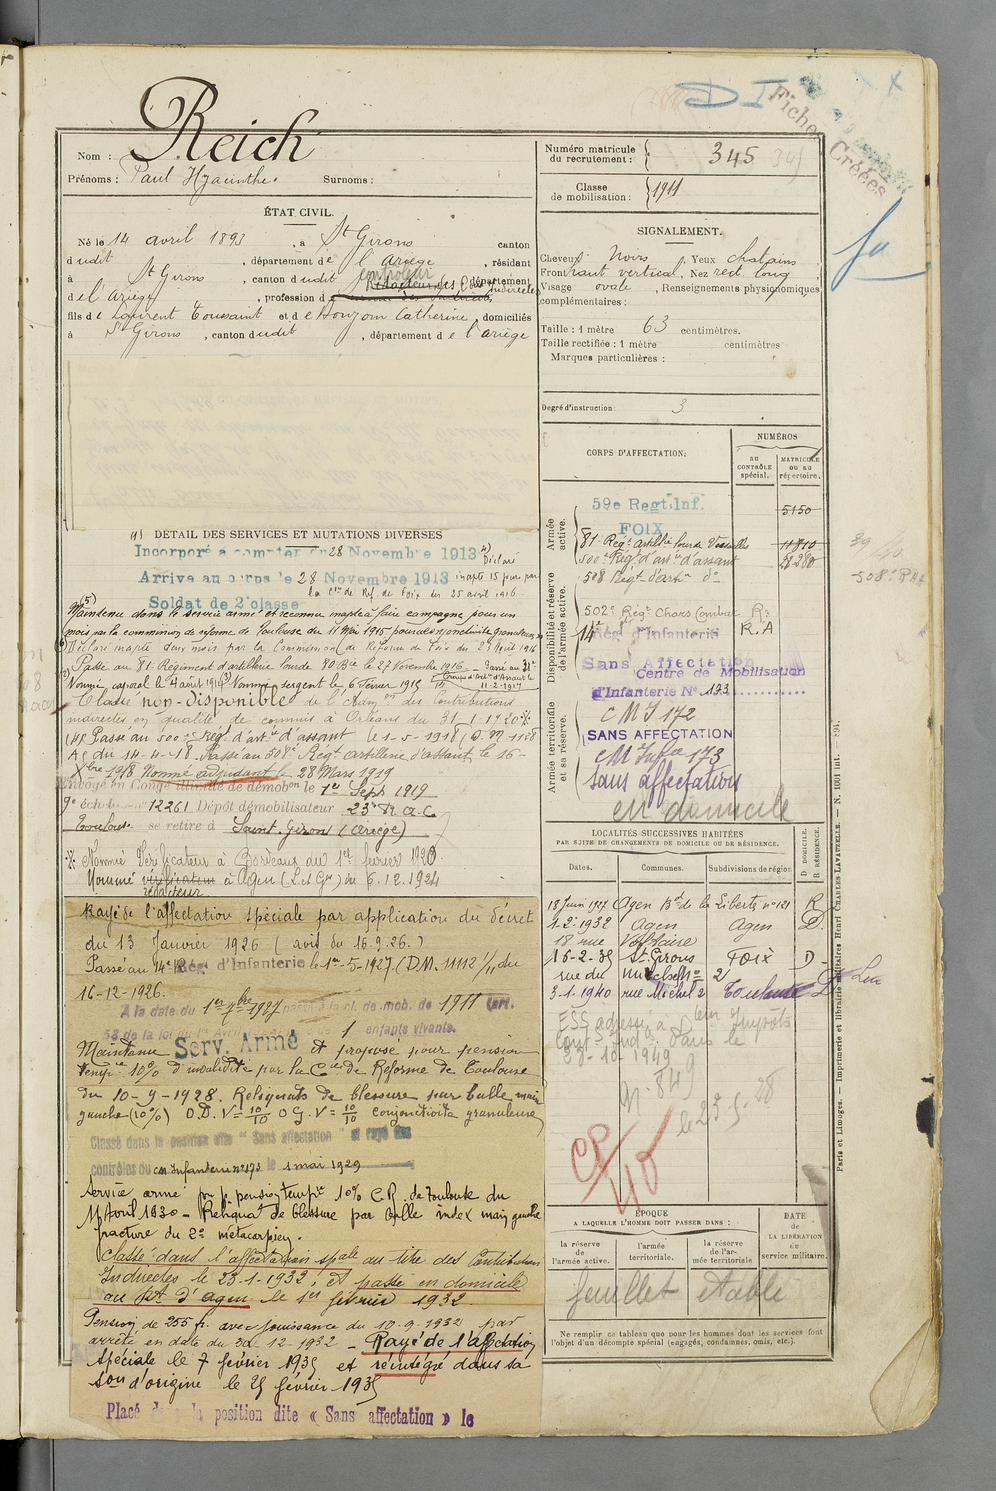 Reich
Nom :
Prénoms : Paul Hyacinthe. Surnoms :
ÉTAT CIVIL.
Né le 14 avril 1893, à St Girons canton
dudit, département de l'ariège, résidant
à St Girons, canton dudit, département
contrôleur
Rédacteur des Cons Indirectes
de l'ariège, profession de
fils de Laurent Toussaint et de Soujon Catherine, domiciliés
à St Girons, canton dudit, département de l'ariège
(1) DÉTAIL DES SERVICES ET MUTATIONS DIVERSES
Incorporé à compter du 28 Novembre 1913 4) Déclaré
Arrivé au corps le 28 Novembre 1913 inapte 15 jours par
la Cion de Ref. de Foix du 25 avril 1916
Soldat de 2e classe
(5) Maintenu dans le service armé et reconnu inapte à faire campagne pour un
mois par la commission de réforme de Toulouse du 11 Mai 1915 pour conjonctivite granuleuse
(6) Déclaré inapte deux mois par la Commission de Réforme de Foix du 29 Août 1916
Passé au 81e Régiment d'artillerie lourde 80 Bie le 27 Novembre 1916 - Passé au 81e
Groupe d'Art. d'Assaut le
11-2-1917
(2) Nommé caporal le 4 août 1914 (3) Nommé sergent le 6 Février 1915
Classé non-disponible de l'Admon des Contributions
indirectes en qualité de commis à Orléans du 31-1-1920
(4) Passé au 500e Rég. d'artie d'assaut le 1-5-1918 (D.M. 1128
AS du 14-4-18. Passé au 508e Régt artillerie d'assaut le 16-
Xbre 1918 Nommé adjudant le 28 Mars 1919
Envoyé en Congé illimité de démobon le 1er Sept 1919
9e échelon n° 12261 Dépôt démobilisateur 23e R.A.C
Toulouse se retire à Saint-Girons (Ariège)
Nommé Vérificateur à Bordeaux du 1er février 1920.
Nommé vérificateur à Agen (L. et Gne) du 6.12.1924
rédacteur
Rayé de l'affectation spéciale par application du décret
du 13 Janvier 1926 (avis du 16.9.26.)
Passé au 14e Régt d'Infanterie le 1er-5-1927 (D.M. 11112 1/11 du
16-12-1926.
A la date du 1er 7bre 1927 passé à la cl. de mob. de 1911 (art.
58 de la loi du 1er Avril 1 enfants vivants.
Maintenu Serv. Armé et proposé pour pension
tempre 10% d'invalidité par la Cion de Réforme de Toulouse
du 10-9-1928. Reliquats de blessure par balle main
gauche (10%) O.D. V = 10/10 O G. V = 10/10 conjonctivite granuleuse
Classé dans la position dite "Sans affectation" et rayé des
contrôles du CM Infanterie n° 173 le 1 mai 1929
Service armé pr p. pension tempre 10% C.R. de Toulouse du
11 Avril 1930 - Reliquat de blessure par balle index main gauche
fracture du 2e métacarpien.
Classé dans l'affectation spale au titre des Contributions
Indirectes le 23-1-1932, et passé en domicile
au Rt d'Agen le 1er février 1932
Pension de 255 fr. avec jouissance du 10.9.1932 par
arrêté en date du 20 12 1932 - Rayé de l'affectation
spéciale le 7 février 1935 et réintégré dans sa
son d'origine le 25 février 1935
Placé dans la position dite « Sans affectation » le
D I
Fiches Créées
Numéro matricule du recrutement : 345
Classe de mobilisation : 1911
SIGNALEMENT.
Cheveux Noirs, Yeux chatains
Front haut vertical, Nez rect. long
Visage ovale, Renseignements physionomiques
complémentaires :
Taille : 1 mètre 63 centimètres.
Taille rectifiée : 1 mètre centimètres
Marques particulières :
Degré d'instruction : 3
CORPS D'AFFECTATION:
NUMÉROS
AU CONTRÔLE spécial.
MATRICULE OU AU répertoire.
Armée active.
59e Regt. Inf. 5150
FOIX
81e Regt Artillie lourde Versailles 11810
500e Régt d'artie d'assaut 28280
508 Regt d'artie do
508e RAS
Disponibilité et réserve de l'armée active.
502e Régt Chars Combat R.
14e Rég. d'Infanterie R.A
Sans Affectation
Centre de Mobilisation
d'Infanterie N° 173
Armée territoriale et sa réserve.
CMI 172
SANS AFFECTATION
CM Infie 173
Sans affectation
en domicile
LOCALITÉS SUCCESSIVES HABITÉES
PAR SUITE DE CHANGEMENTS DE DOMICILE OU DE RÉSIDENCE.
Dates. Communes. Subdivisions de région
D DOMICILE. R RÉSIDENCE.
18 Juin 1927 Agen Bd de la Liberté n° 121 R
1-2-1932 Agen Agen D.
18 rue Voltaire
15-2-35 St Girons Foix D
3-1-1940 rue Michel 2 Toulouse D
23-10-1949
N. 849
le 23-5-28
CR
40
ÉPOQUE
A LAQUELLE L'HOMME DOIT PASSER DANS :
la réserve de l'armée active.
l'armée territoriale.
la réserve de l'armée territoriale
DATE de LA LIBÉRATION du service militaire.
feuillet établi
Ne remplir ce tableau que pour les hommes dont les services font
l'objet d'un décompte spécial (engagés, condamnés, omis, etc.).
Paris et Limoges. — Imprimerie et librairie militaires Henri CHARLES-LAVAUZELLE. — N. 1001 int.